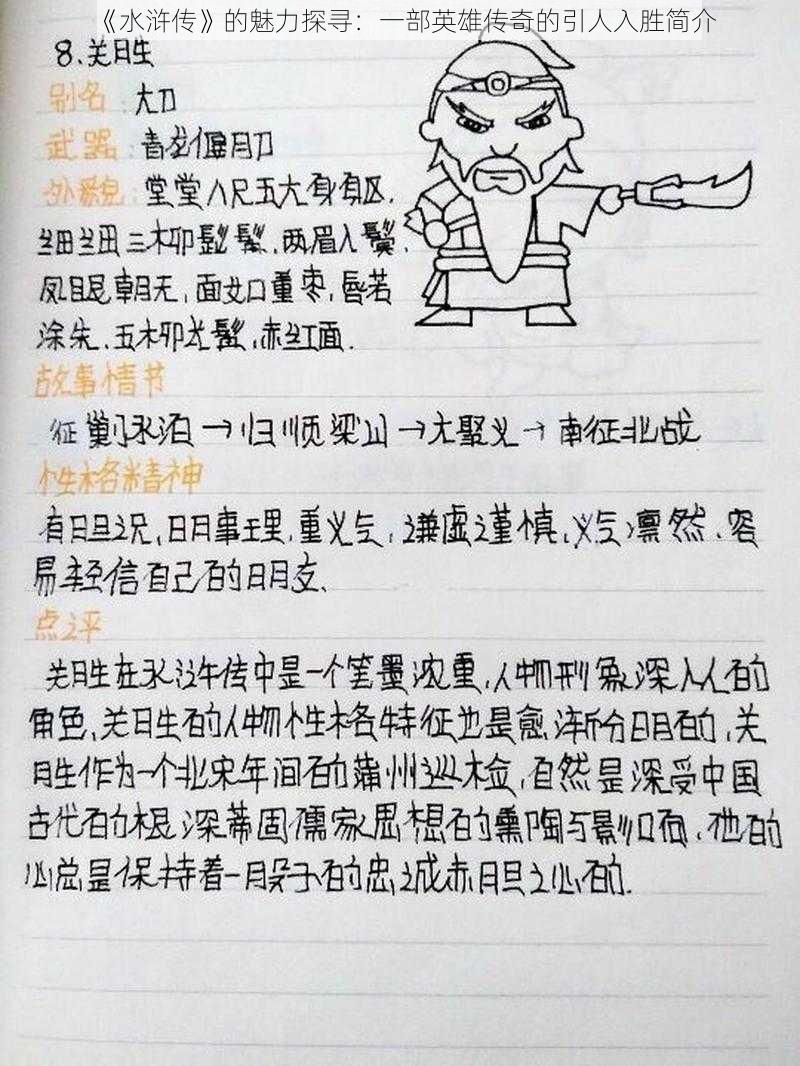 《水浒传》的魅力探寻：一部英雄传奇的引人入胜简介
8.关胜
别名：大刀
武器：青龙偃月刀
外貌：堂堂八尺五六身躯,
细细三柳髭髯,两眉入鬓,
凤眼朝天,面如重枣,唇若
涂朱.五柳龙髯,赤红面.
故事情节
征剿水泊→归顺梁山→大聚义→南征北战
性格精神
有胆识,明事理,重义气,谦虚谨慎,义气凛然.容
易轻信自己的朋友.
点评
关胜在水浒传中是一个笔墨浓重,人物形象深入人的
角色,关胜的人物性格特征也是愈渐分明的,关
胜作为一个北宋年间的蒲州巡检,自然是深受中国
古代的根深蒂固儒家思想的熏陶与影响,他的
心总是保持着一股子的忠诚赤胆之心的.